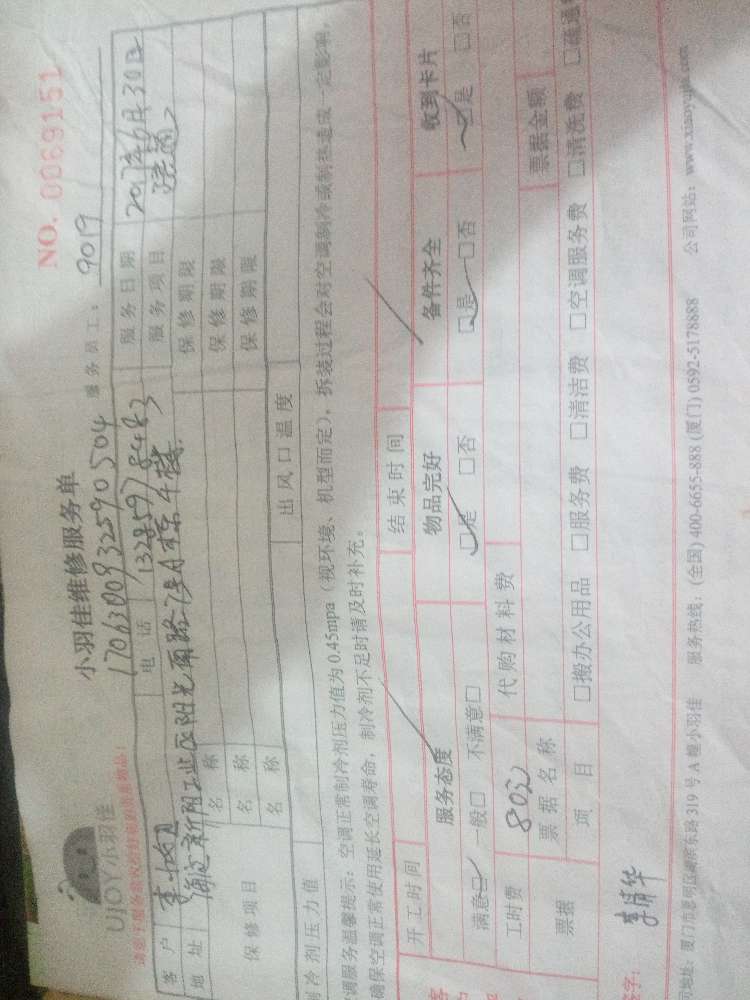 NO. 0069151
UJOY小羽佳
小羽佳维修服务单
1706300932590504
服务员工：9019
客户 电话 13285978483 服务日期 2017年6月30日
地址 服务项目
保修项目 名称 保修期限
名称 保修期限
名称 保修期限
制冷剂压力值 出风口温度
调服务温馨提示：空调正常制冷剂压力值为0.45mpa（视环境、机型而定），拆装过程会对空调制冷或制热造成一定影响，
确保空调正常使用延长空调寿命，制冷剂不足时请及时补充。
开工时间 结束时间
服务态度 物品完好 备件齐全 收到卡片
满意□ 一般□ 不满意□ □是 □否 □是 □否 □是 □否
工时费 代购材料费
票据 票据名称 票据金额
项目 □搬办公用品 □服务费 □清洁费 □空调服务费 □清洗费
字：李清华
319号A幢小羽佳 服务热线：(全国) 400-6655-888 (厦门) 0592-5178888 公司网站：